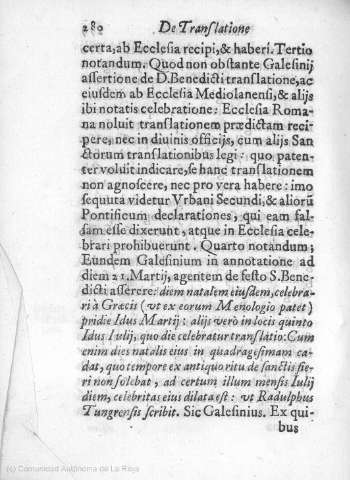 280 De Translatione
certa, ab Ecclesia recipi, & haberi. Tertio
notandum. Quod non obstante Galesinij
assertione de D. Benedicti translatione, ac
eiusdem ab Ecclesia Mediolanensi, & alijs
ibi notatis celebratione: Ecclesia Roma-
na noluit translationem prædictam reci-
pere, nec in diuinis officijs, cum alijs San
ctorum translationibus legi: quo paten-
ter voluit indicare, se hanc translationem
non agnoscere, nec pro vera habere: imo
sequuta videtur Vrbani Secundi, & aliorũ
Pontificum declarationes, qui eam fal-
sam esse dixerunt, atque in Ecclesia cele-
brari prohibuerunt. Quarto notandum;
Eundem Galesinium in annotatione ad
diem 21. Martij, agentem de festo S. Bene-
dicti asserere: diem natalem eiusdem, celebra-
ri à Græcis (vt ex eorum Menologio patet)
pridie Idus Martij: alijs verò in locis quinto
Idus Iulij, quo die celebratur translatio: Cum
enim dies natalis eius in quadragesimam ca-
dat, quo tempore ex antiquo ritu de sanctis fie-
ri non solebat, ad certum illum mensis Iulij
diem, celebritas eius dilata est: vt Radulphus
Tungrensis scribit. Sic Galesinius. Ex qui-
bus
(c) Comunidad Autónoma de La Rioja